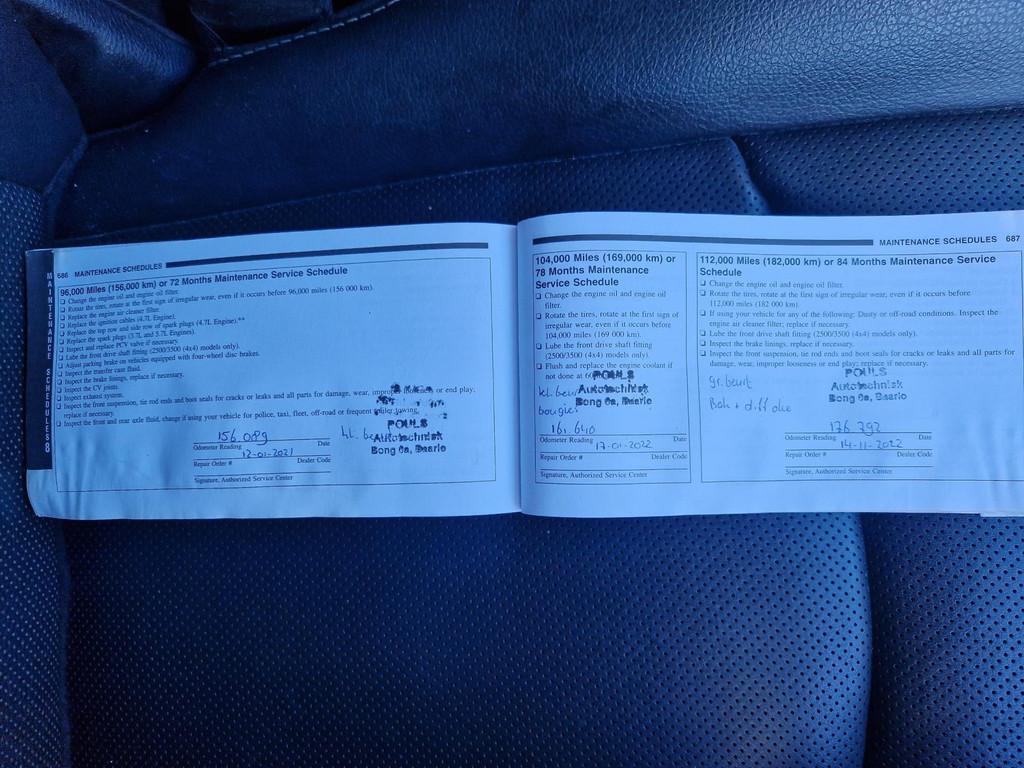 MAINTENANCE SCHEDULES 8
686 MAINTENANCE SCHEDULES
96,000 Miles (156,000 km) or 72 Months Maintenance Service Schedule
❑ Change the engine oil and engine oil filter.
❑ Rotate the tires, rotate at the first sign of irregular wear, even if it occurs before 96,000 miles (156 000 km).
❑ Replace the engine air cleaner filter.
❑ Replace the ignition cables (4.7L Engine).
❑ Replace the top row and side row of spark plugs (4.7L Engine).**
❑ Replace the spark plugs (3.7L and 5.7L Engines).
❑ Inspect and replace PCV valve if necessary.
❑ Lube the front drive shaft fitting (2500/3500 (4x4) models only).
❑ Adjust parking brake on vehicles equipped with four-wheel disc brakes.
❑ Inspect the transfer case fluid.
❑ Inspect the brake linings, replace if necessary.
❑ Inspect the CV joints.
❑ Inspect exhaust system.
❑ Inspect the front suspension, tie rod ends and boot seals for cracks or leaks and all parts for damage, wear, improper or end play;
replace if necessary.
❑ Inspect the front and rear axle fluid, change if using your vehicle for police, taxi, fleet, off-road or frequent trailer towing.
POULS
Autotechniek
Bong 6a, Baarlo
156.089
Odometer Reading Date
12-01-2021
Repair Order # Dealer Code
Signature, Authorized Service Center
MAINTENANCE SCHEDULES 687
104,000 Miles (169,000 km) or
78 Months Maintenance
Service Schedule
❑ Change the engine oil and engine oil
filter.
❑ Rotate the tires, rotate at the first sign of
irregular wear, even if it occurs before
104,000 miles (169 000 km).
❑ Lube the front drive shaft fitting
(2500/3500 (4x4) models only).
❑ Flush and replace the engine coolant if
not done at
POULS
Autotechniek
Bong 6a, Baarlo
kl. beurt
bougies
161.640
Odometer Reading Date
17-01-2022
Repair Order # Dealer Code
Signature, Authorized Service Center
112,000 Miles (182,000 km) or 84 Months Maintenance Service
Schedule
❑ Change the engine oil and engine oil filter.
❑ Rotate the tires, rotate at the first sign of irregular wear, even if it occurs before
112,000 miles (182 000 km).
❑ If using your vehicle for any of the following: Dusty or off-road conditions. Inspect the
engine air cleaner filter; replace if necessary.
❑ Inspect the brake linings, replace if necessary.
❑ Lube the front drive shaft fitting (2500/3500 (4x4) models only).
❑ Inspect the front suspension, tie rod ends and boot seals for cracks or leaks and all parts for
damage, wear, improper looseness or end play; replace if necessary.
POULS
Autotechniek
Bong 6a, Baarlo
gr. beurt
Bak + diff olie
176.292
Odometer Reading Date
14-11-2022
Repair Order # Dealer Code
Signature, Authorized Service Center